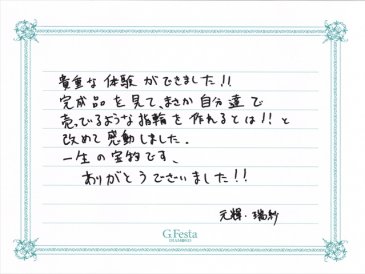 貴重な体験ができました!!
完成品を見て、まさか自分達で
売ってるような指輪を作れるとは!!と
改めて感動しました。
一生の宝物です、
ありがとうございました!!
元輝・瑞紗
G.Festa
DIAMOND